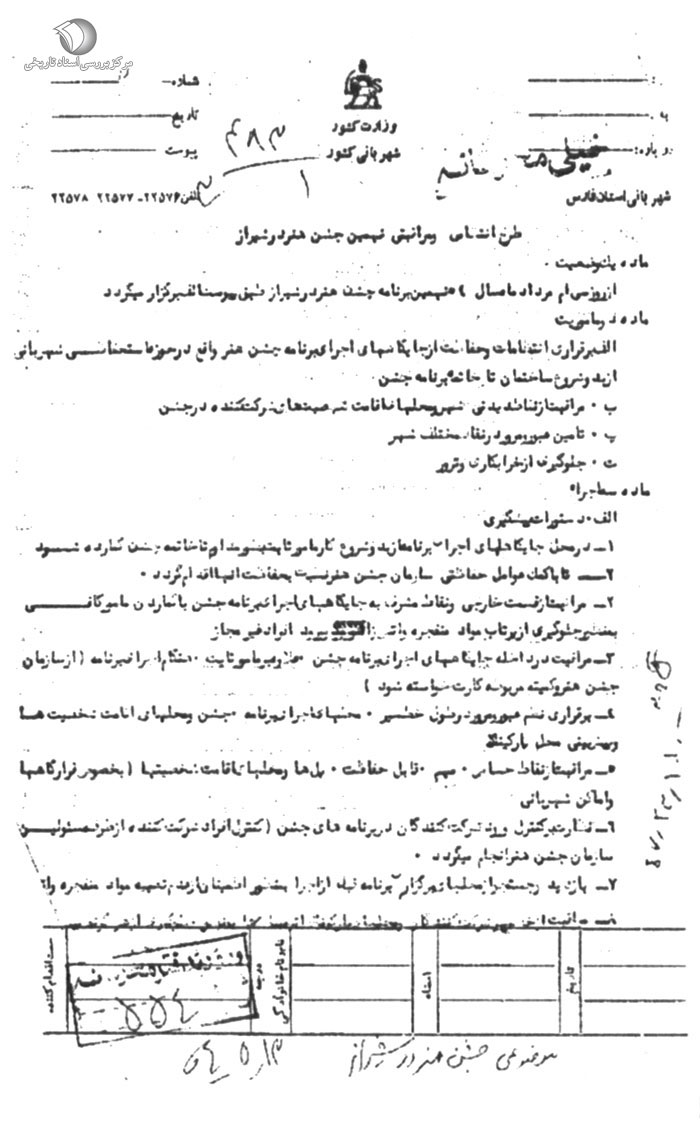 مرکز بررسی اسناد تاریخی
شماره
تاریخ
پیوست
وزارت کشور
شهربانی کشور
به
درباره:
خیلی محرمانه
۴۸۳
۱
شهربانی استان فارس
تلفن ۲۲۵۷۶ - ۲۲۵۷۷ ۲۲۵۷۸
طرح انتظامی و مراقبتی نهمین جشن هنر در شیراز
ماده یک وضعیت
از روز سی ام مرداد ماه سال نهمین برنامه جشن هنر در شیراز طبق پیوست الف برگزار میگردد
ماده دو ماموریت
الف برقراری انتظامات و حفاظت از جایگاههای اجرای برنامه جشن هنر واقع در حوزه استحفاظی شهربانی
از بدو شروع ساختمان تا خاتمه برنامه جشن
ب مراقبت از نقاط دیدنی شهر و محلهای اقامت شخصیتهای شرکت کننده در جشن
پ تامین عبور و مرور در نقاط مختلف شهر
ت جلوگیری از خرابکاری و ترور
ماده سه اجرا
الف دستورات پیشگیری
۱ـ در محل جایگاههای اجرا برنامه از بدو شروع کار مامور ثابت بطور مداوم تا خاتمه جشن گمارده شود
۲ـ تا با کمک عوامل حفاظتی سازمان جشن هنر نسبت به حفاظت آنها اقدام گردد
۲ـ مراقبت از قسمت خارجی و نقاط مشرف به جایگاههای اجرای برنامه جشن با گماردن مامور کافی
بمنظور جلوگیری از پرتاب مواد منفجره و آتش زا ورود افراد غیر مجاز
۳ـ مراقبت در داخل جایگاههای اجرای برنامه جشن علاوه بر مامور ثابت هنگام اجرا برنامه (از سازمان
جشن هنر و کمیته مربوطه کارت خواسته شود)
۴ـ برقراری نظم عبور و مرور در طول خط سیر محلهای اجرا برنامه جشن و محلهای اقامت شخصیت ها
و پیش بینی محل پارکینگ
۵ـ مراقبت از نقاط حساس مهم قابل حفاظت پل ها و محلهای اقامت شخصیتها (بخصوص قرارگاهها
و اماکن شهربانی
۶ـ نظارت بر کنترل ورود شرکت کنندگان در برنامه های جشن (کنترل افراد شرکت کننده از طرف مسئولین
سازمان جشن هنر انجام میگردد
۷ـ بازدید و جستجو از محلهای برگزاری برنامه قبل از اجرا بمنظور اطمینان از عدم تعبیه مواد منفجره و آتش
تاریخ
امضاء
نام و نام خانوادگی
درجه
سمت اقدام کننده
۵۵۴
موضوعی جشن هنر در شیراز